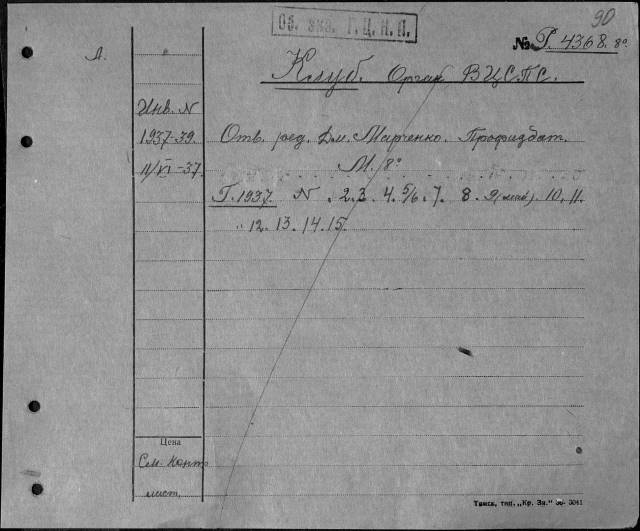 90
Об. экз. Г.Ц.К.П.
№ Р. 4368. 8°
Л.
Клуб. Орган ВЦСПС.
Инв. N
1937-39. Отв. ред. Дм. Марченко. Профиздат.
11/VI-37. М. 8°
Г. 1937. N 2. 3. 4. 5/6. 7. 8. 9 (май). 10. 11.
12. 13. 14. 15.
Цена
См. Конт.
лист.
Томск, тип. „Кр. Зн." 36- 3041